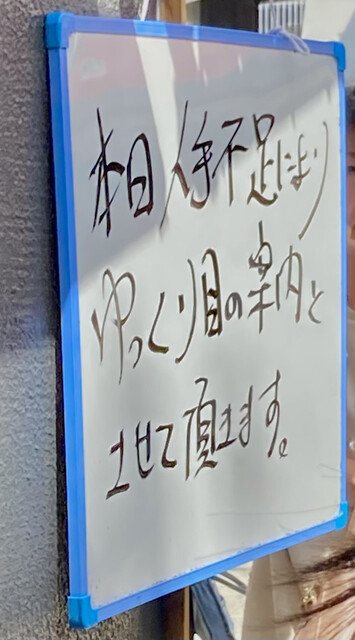 本日人手不足により
ゆっくり目の案内と
させて頂きます。